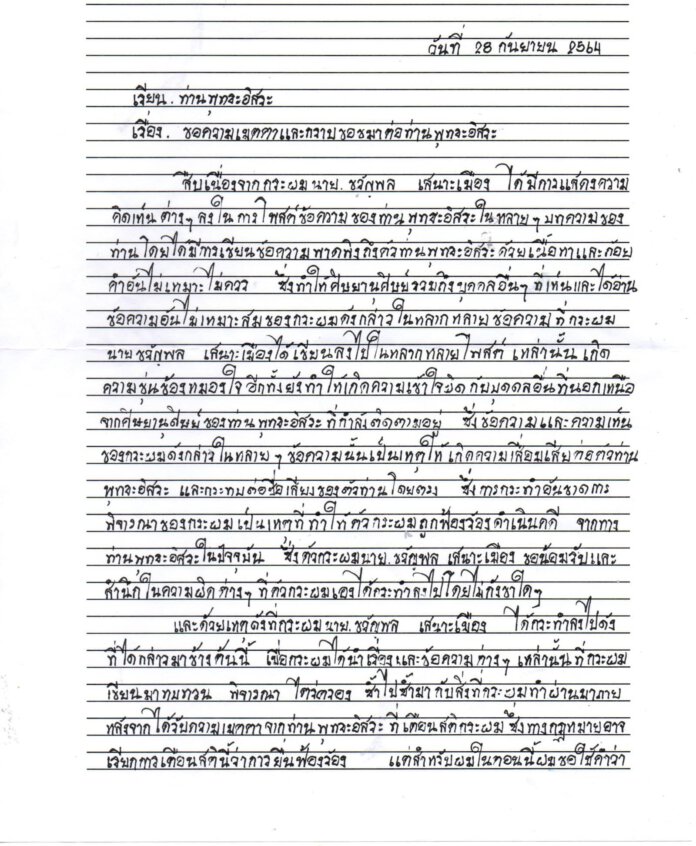 วันที่ 28 กันยายน 2564
เรียน. ท่านพุทธะอิสระ
เรื่อง. ขอความเมตตาและกราบขอขมาต่อท่านพุทธะอิสระ
สืบเนื่องจากกระผมนาย. ชวัญพล เสนาะเมือง ได้มีการแสดงความ
คิดเห็นต่างๆ ลงในการโพสต์ข้อความของท่านพุทธะอิสระในหลายๆ บทความของ
ท่านโดยได้มีการเขียนข้อความพาดพิงถึงตัวท่านพุทธะอิสระด้วยเนื้อหาและถ้อย
คำอันไม่เหมาะไม่ควร ซึ่งทำให้ศิษยานุศิษย์รวมถึงบุคคลอื่นๆ ที่เห็นและได้อ่าน
ข้อความอันไม่เหมาะสมของกระผมดังกล่าวในหลากหลายข้อความที่กระผม
นายชวัญพล เสนาะเมืองได้เขียนลงไปในหลากหลายโพสต์ เหล่านั้นเกิด
ความขุ่นข้องหมองใจ อีกทั้งยังทำให้เกิดความเข้าใจผิดกับบุคคลอื่นที่นอกเหนือ
จากศิษยานุศิษย์ของท่านพุทธะอิสระที่กำลังติดตามอยู่ ซึ่งข้อความและความเห็น
ของกระผมดังกล่าวในหลายๆ ข้อความนั้นเป็นเหตุให้เกิดความเสื่อมเสียต่อตัวท่าน
พุทธะอิสระ และกระทบต่อชื่อเสียงของตัวท่านโดยตรง ซึ่งการกระทำอันขาดการ
พิจารณาของกระผมเป็นเหตุที่ทำให้ตัวกระผมถูกฟ้องร้องดำเนินคดี จากทาง
ท่านพุทธะอิสระในปัจจุบัน ซึ่งตัวกระผมนาย.ชวัญพล เสนาะเมือง ขอน้อมรับและ
สำนึกในความผิดต่างๆ ที่ตัวกระผมเองได้กระทำลงไปโดยไม่กังขาใดๆ
และด้วยเหตุดังที่กระผมนาย.ชวัญพล เสนาะเมือง ได้กระทำลงไปดัง
ที่ได้กล่าวมาข้างต้นนี้ เมื่อกระผมได้นำเรื่องและข้อความต่างๆ เหล่านั้นที่กระผม
เขียนมาทบทวน พิจารณา ไตร่ตรอง ซ้ำไปซ้ำมากับสิ่งที่กระผมทำผ่านมาภาย
หลังจากได้รับความเมตตาจากท่านพุทธะอิสระที่เตือนสติกระผม ซึ่งทางกฎหมายอาจ
เรียกการเตือนสตินี้ว่าการยื่นฟ้องร้อง แต่สำหรับผมในตอนนี้ผมขอใช้คำว่า